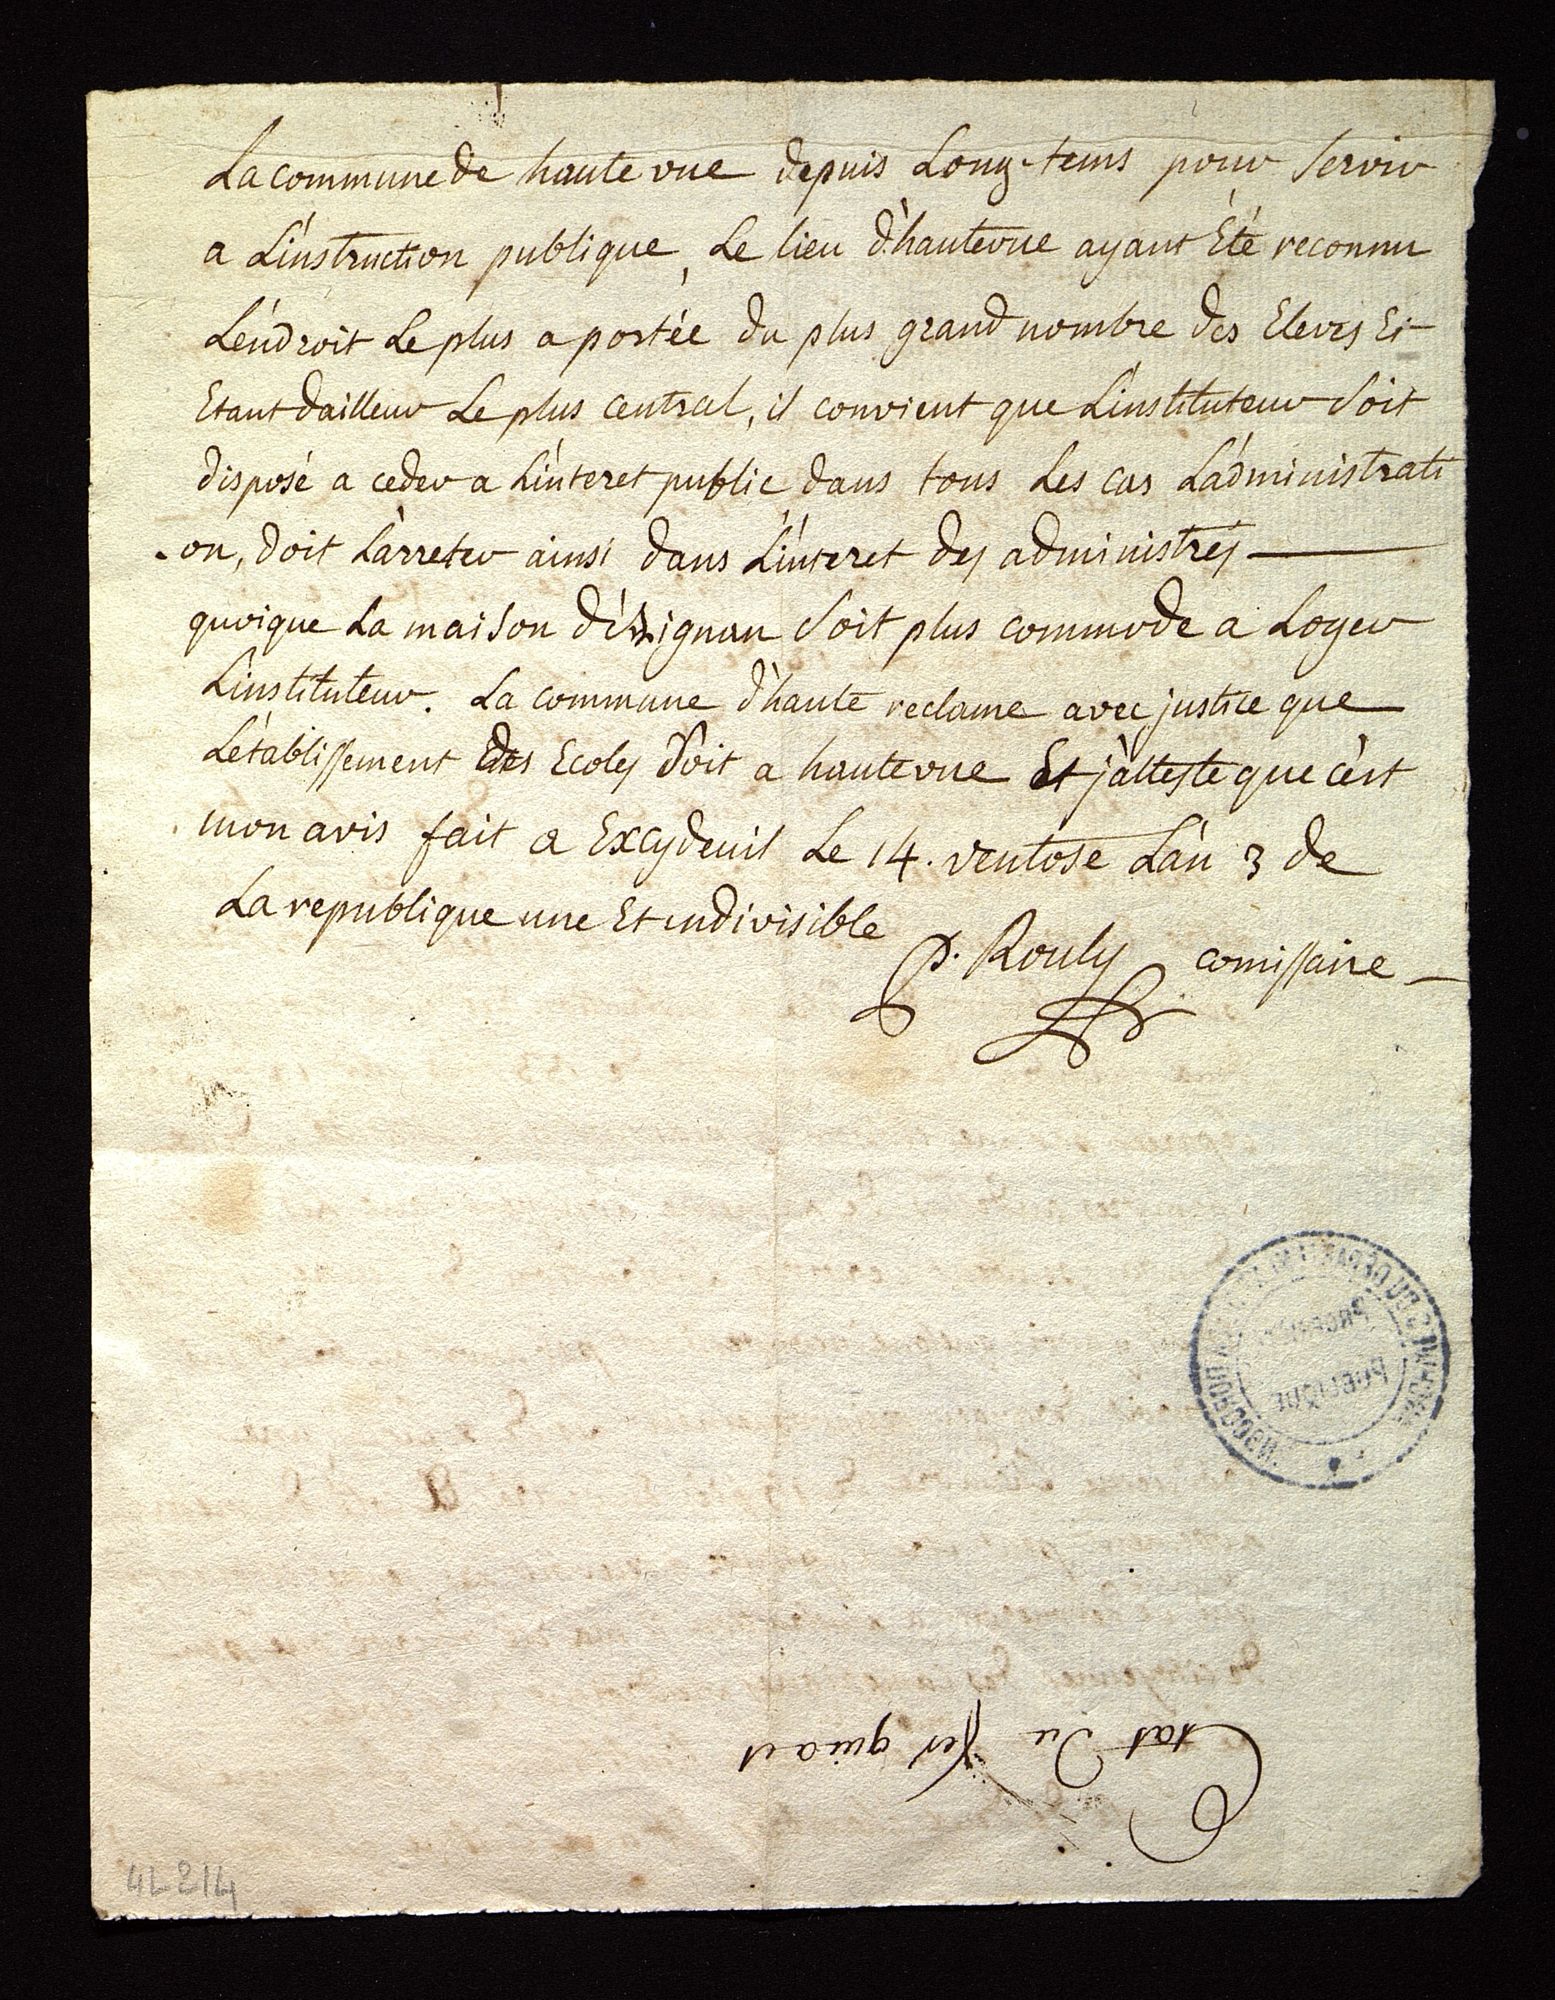 La commune de haute vue depuis Long-tems pour Servir
a L'instruction publique, Le lieu d'hautevue ayant Eté reconnu
L'endroit Le plus a portée du plus grand nombre des Eleves Et
Etant dailleur Le plus central, il convient que L'instituteur Soit
disposé a ceder a L'interet public dans tous Les cas L'administrati
-on, doit L'arreter ainsi dans L'interet des administrés
quoique La maison d' Soit plus commode a Loger
L'instituteur. La commune d'haute reclame avec justice que
L'établissement des Ecoles Soit a hautevue Et j'atteste que c'est
mon avis fait a Excydeuil Le 14. ventose L'an 3 de
La republique une Et indivisible
P. Rouly comissaire
Etat du
4L 214